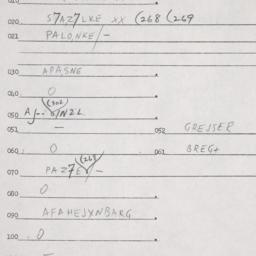 020 S7AZ7LKE XX (268 (269
021 PALONKE/-
030 APASNG
040 O
(302
050 AJ-- O/NZL
051 - 052 GREJSER
060 O 061 BREG+
(269
070 PAZ7E/-
080 O
090 AFAHEJXNBARG
100 O